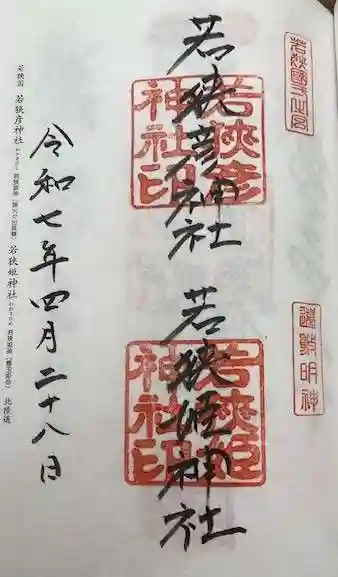 若狭國一之宮
遠敷明神
若狭彦神社
若狭彦神社印
若狭姫神社
若狭姫神社印
令和七年四月二十八日
若狭国 若狭彦神社 若狭姫神社 北陸道